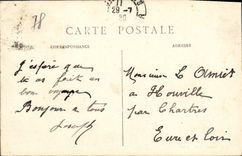 78
11
29-7
CARTE POSTALE
CORRESPONDANCE
ADRESSE
J'espère que
tu as fait un
bon voyage
Bonjour a tous
Joseph
Monsieur L
a Houville
par Chartres
Eure et Loir